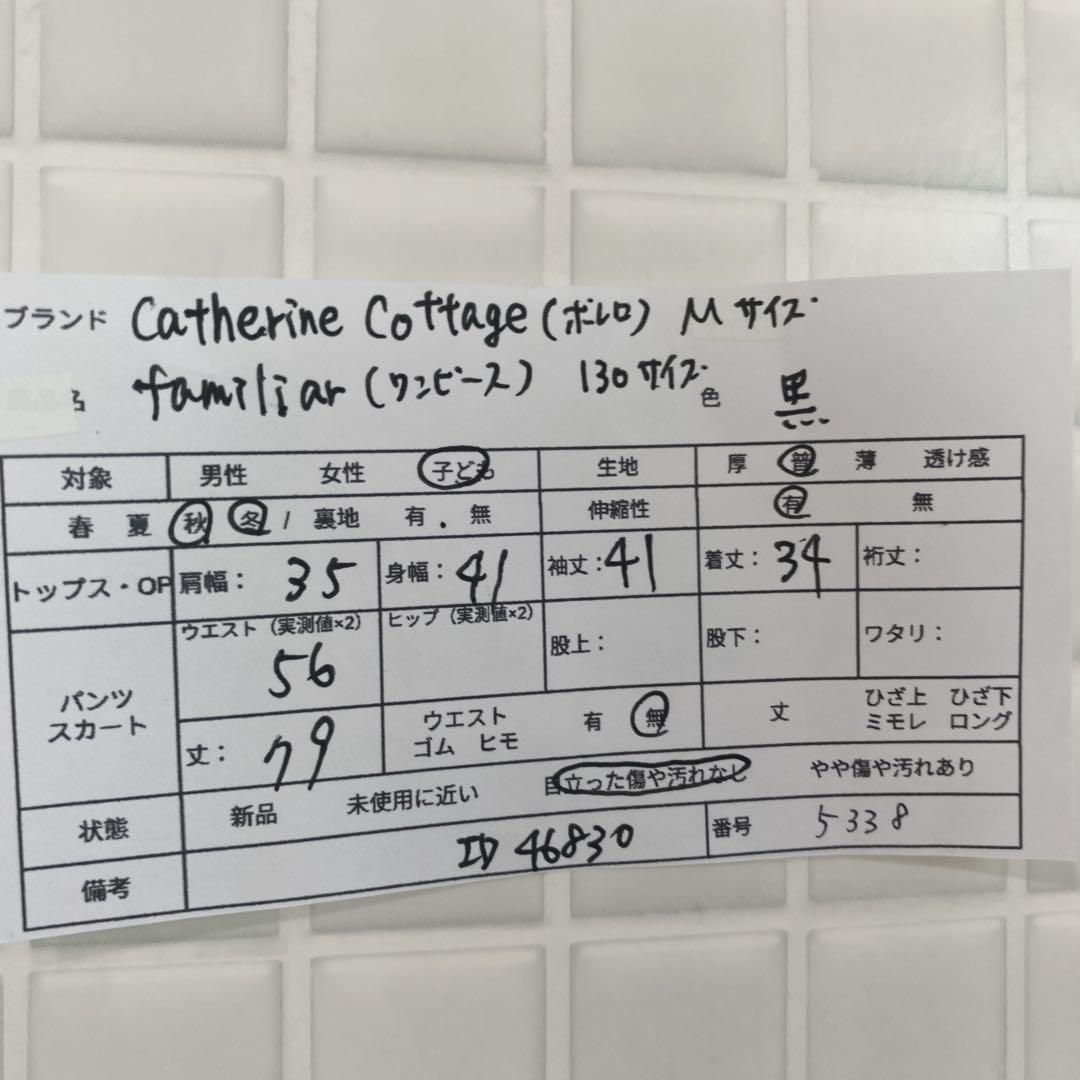 ブランド Catherine Cottage (ボレロ) Mサイズ
名 familiar (ワンピース) 130サイズ 色 黒
対象 男性 女性 子ども 生地 厚 普 薄 透け感
春 夏 秋 冬 / 裏地 有 . 無 伸縮性 有 無
トップス・OP 肩幅: 35 身幅: 41 袖丈: 41 着丈: 34 裄丈:
パンツ スカート ウエスト (実測値×2) 56 ヒップ (実測値×2) 股上: 股下: ワタリ:
丈: 79 ウエスト ゴム ヒモ 有 無 丈 ひざ上 ひざ下 ミモレ ロング
状態 新品 未使用に近い 目立った傷や汚れなし やや傷や汚れあり
備考 ID 46830 番号 5338